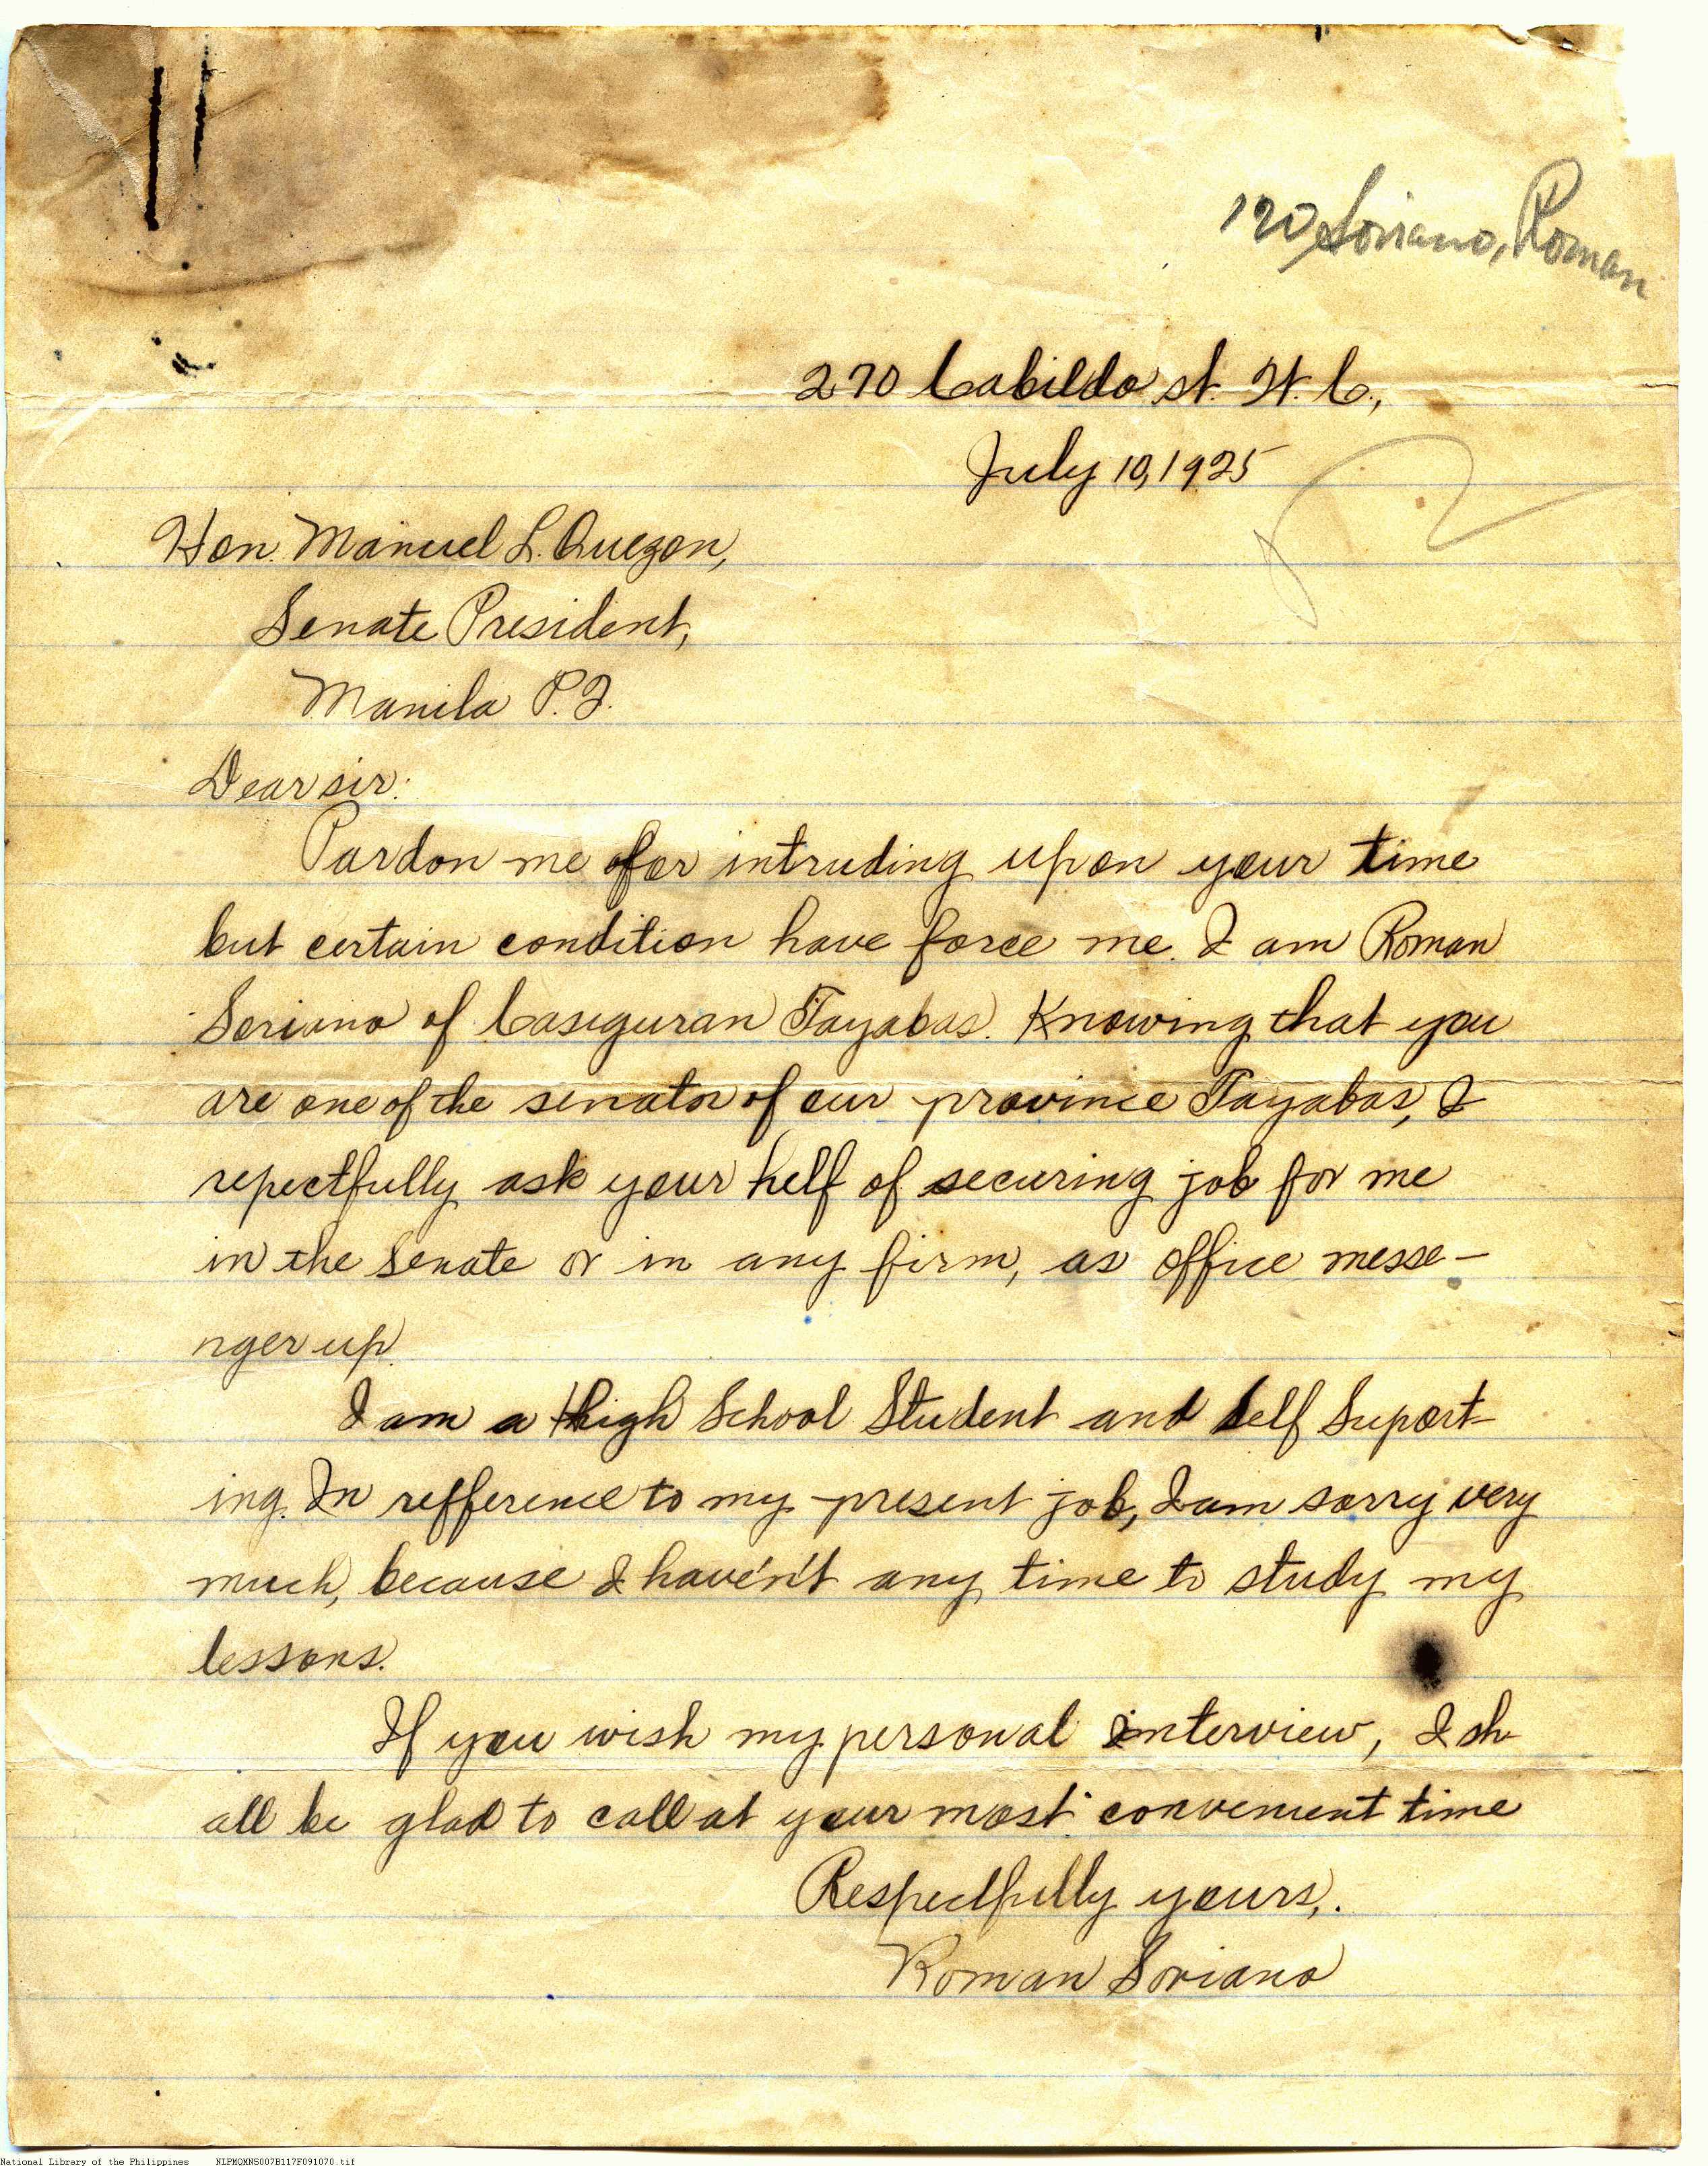 120 Soriano, Roman
270 Cabildo st. W. C.,
July 10, 1925
Hon. Manuel L. Quezon,
Senate President,
Manila P.I.
Dear sir:
Pardon me for intruding upon your time
but certain condition have force me. I am Roman
Soriano of Casiguran Tayabas. Knowing that you
are one of the senator of our province Tayabas, I
repectfully ask your helf of securing job for me
in the Senate or in any firm, as office messe-
nger up.
I am a High School Student and Self Suport-
ing. In refference to my present job, I am sorry very
much, because I have'n't any time to study my
lessons.
If you wish my personal interview, I sh-
all be glad to call at your most convenient time
Respectfully yours,.
Roman Soriano
National Library of the Philippines NLPMQMNS007B117F091070.tif